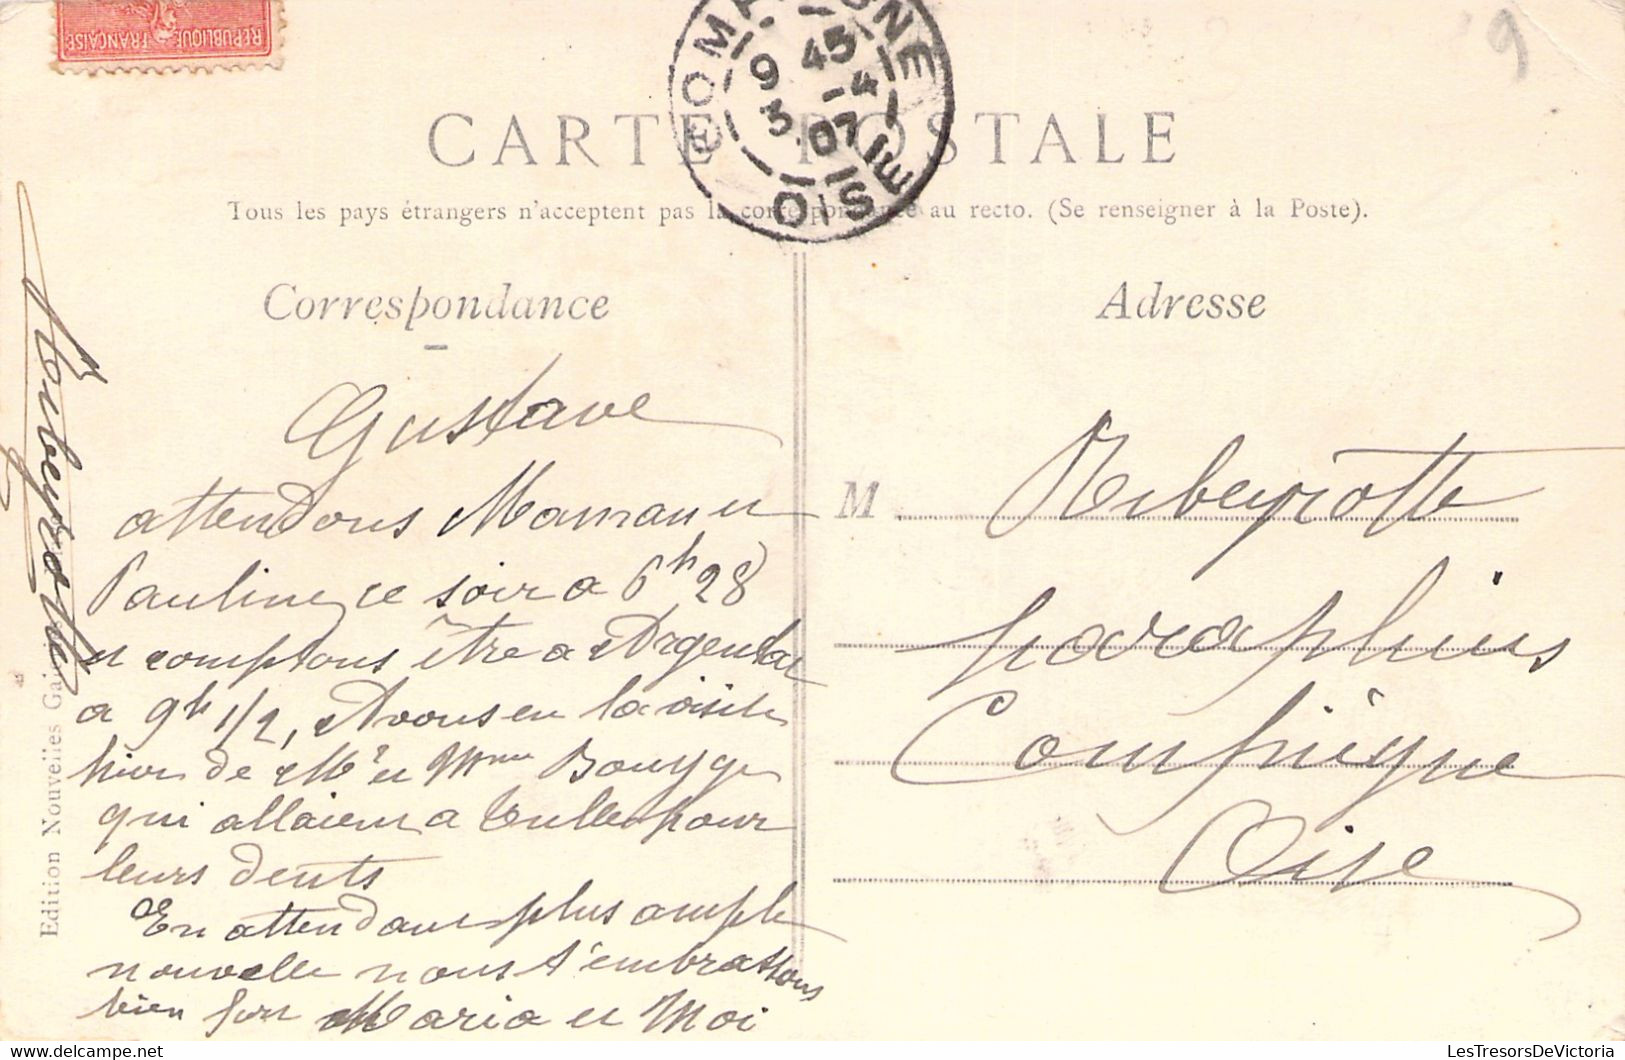 REPUBLIQUE FRANÇAISE
9
COMPIEGNE
9 45
3 -4
07
OISE
CARTE POSTALE
Tous les pays étrangers n'acceptent pas la correspondance au recto. (Se renseigner à la Poste).
Correspondance
Adresse
Gustave
attendons Maman et
Pauline ce soir a 6h 28
et comptons être a Argentat
a 9h 1/2, Avons eu la visite
hier de Mr et Mme Bouyge
qui allaient a Tulle pour
leurs dents
En attendant plus ample
nouvelle nous t'embrassons
bien fort Maria et Moi
Ribeyrotte
M Ribeyrotte
parapluies
Compiègne
Oise
Edition Nouvelles Galeries
LesTresorsDeVictoria
www.delcampe.net